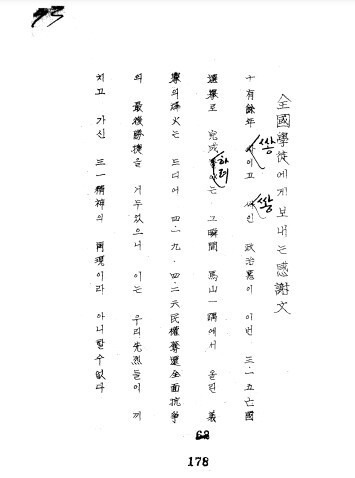 全國學徒에게 보내는 感謝文
十有餘年 쌓이고 쌓인 政治惡이 이번 三·一五亡國
選擧로 完成하려는 그瞬間 馬山一隅에서 올린 義
擧의 烽火는 드디어 四·一九·四·二六民權奪還全面抗爭
의 最後勝捷을 거두었으니 이는 우리先烈들이 끼
치고 가신 三一精神의 再現이라 아니할수없다
68
178